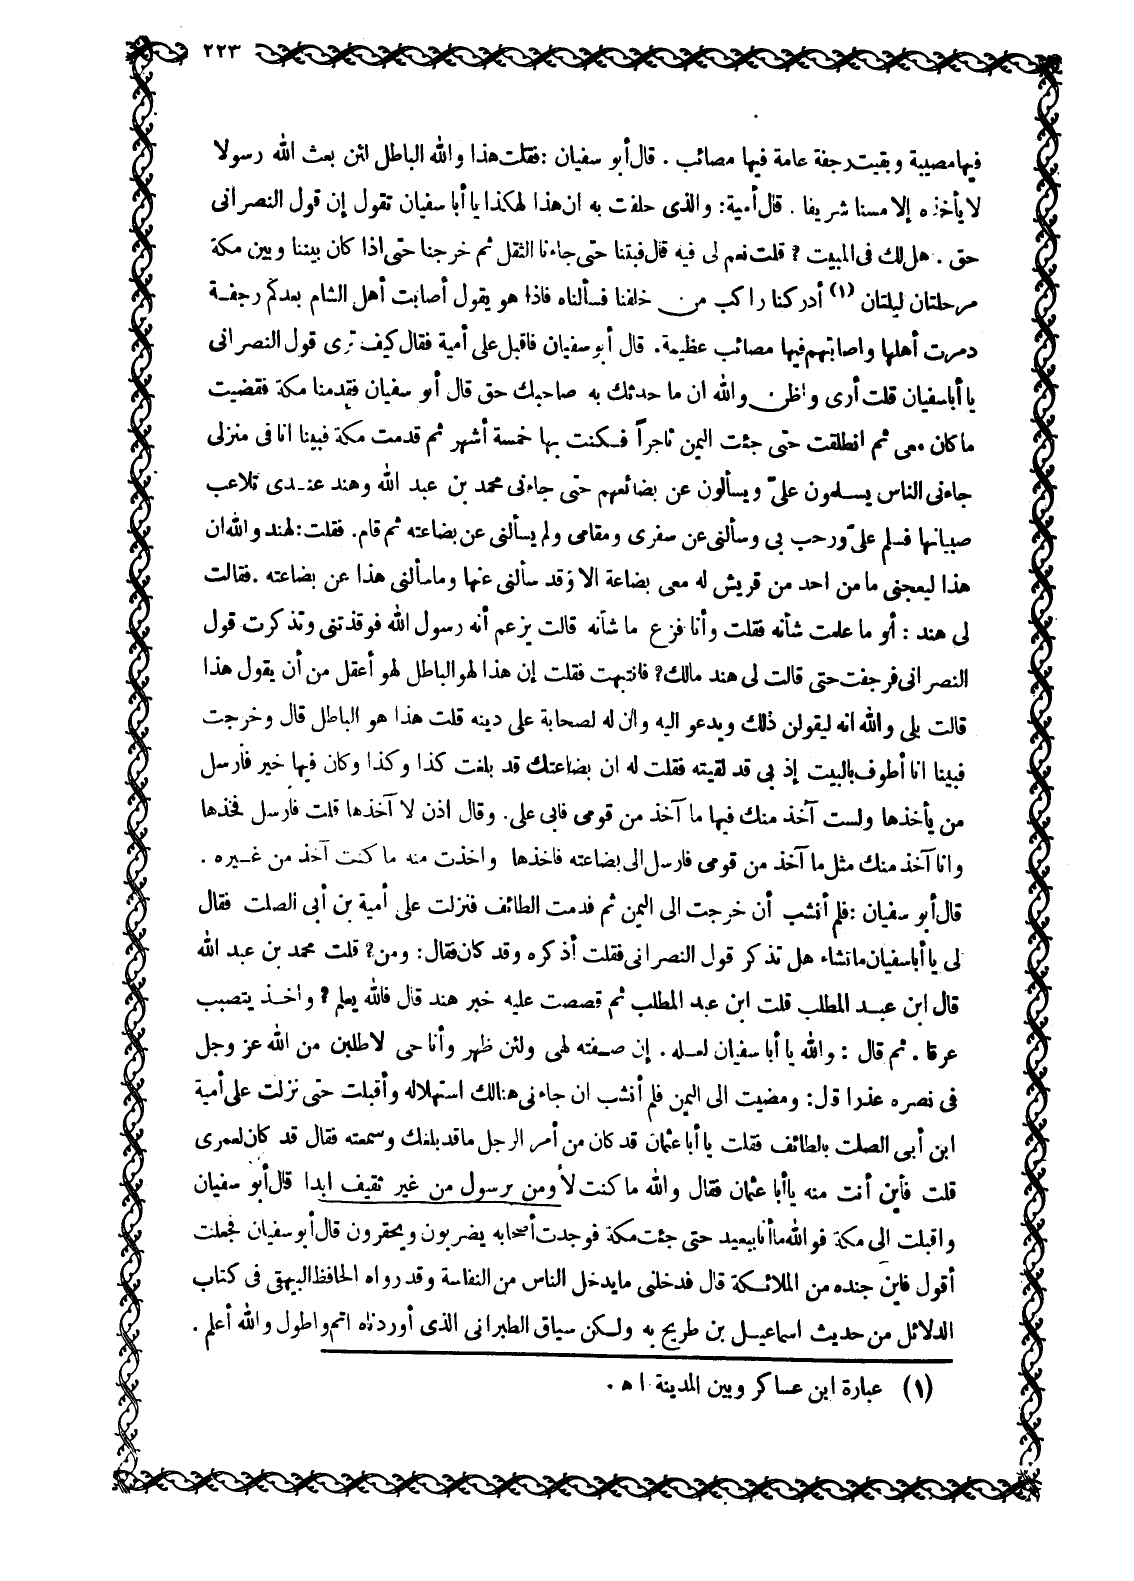 ٢٢٣
فيها مصيبة وبقيت رجفة عامة فيها مصائب . قال أبو سفيان : فقلت هذا والله الباطل لئن بعث الله رسولا
لا يأخذه إلا مسنا شريفا . قال أمية : والذى حلفت به ان هذا لهكذا يا أبا سفيان تقول إن قول النصرانى
حق . هل لك فى المبيت ؟ قلت نعم لى فيه قال فبتنا حتى جاءنا الثقل ثم خرجنا حتى اذا كان بيننا وبين مكة
مرحلتان ليلتان (١) أدركنا راكب من خلفنا فسألناه فاذا هو يقول أصابت أهل الشام بعدكم رجفة
دمرت أهلها واصابتهم فيها مصائب عظيمة . قال أبو سفيان فاقبل على أمية فقال كيف ترى قول النصرانى
يا أبا سفيان قلت أرى واظن والله ان ما حدثك به صاحبك حق قال أبو سفيان فقدمنا مكة فقضيت
ما كان معى ثم انطلقت حتى جئت اليمن تاجراً فكنت بها خمسة أشهر ثم قدمت مكة فبينا انا فى منزلى
جاءنى الناس يسلمون علىّ ويسألون عن بضائعهم حتى جاءنى محمد بن عبد الله وهند عندى تلاعب
صبيانها فسلم علىّ ورحب بى وسألنى عن سفرى ومقامى ولم يسألنى عن بضاعته ثم قام . فقلت : لهند والله ان
هذا ليعجبنى ما من احد من قريش له معى بضاعة الا وقد سألنى عنها وما سألنى هذا عن بضاعته . فقالت
لى هند : أو ما علمت شأنه فقلت وأنا فزع ما شأنه قالت يزعم أنه رسول الله فوقذتنى وتذكرت قول
النصرانى فرجفت حتى قالت لى هند مالك ؟ فانتبهت فقلت إن هذا لهو الباطل لهو أعقل من أن يقول هذا
قالت بلى والله انه ليقولن ذلك ويدعو اليه وان له لصحابة على دينه قلت هذا هو الباطل قال وخرجت
فبينا انا أطوف بالبيت إذ بى قد لقيته فقلت له ان بضاعتك قد بلغت كذا وكذا وكان فيها خير فأرسل
من يأخذها ولست آخذ منك فيها ما آخذ من قومى فابى على . وقال اذن لا آخذها قلت فأرسل فخذها
وانا آخذ منك مثل ما آخذ من قومى فارسل الى بضاعته فاخذها واخذت منه ما كنت آخذ من غيره .
قال أبو سفيان : فلم أنشب أن خرجت الى اليمن ثم قدمت الطائف فنزلت على أمية بن أبى الصلت فقال
لى يا أبا سفيان ما تشاء هل تذكر قول النصرانى فقلت أذكره وقد كان فقال : ومن ؟ قلت محمد بن عبد الله
قال ابن عبد المطلب قلت ابن عبد المطلب ثم قصصت عليه خبر هند قال فالله يعلم ؟ واخذ يتصبب
عرقا . ثم قال : والله يا أبا سفيان لعله . إن صفته لهى ولئن ظهر وأنا حى لاطلبن من الله عز وجل
فى نصره عذرا قال : ومضيت الى اليمن فلم أنشب ان جاءنى هنالك استهلاله وأقبلت حتى نزلت على أمية
ابن أبى الصلت بالطائف فقلت يا أبا عثمان قد كان من أمر الرجل ما قد بلغك وسمعته فقال قد كان لعمرى
قلت فأين أنت منه يا أبا عثمان فقال والله ما كنت لأومن برسول من غير ثقيف ابدا قال أبو سفيان
واقبلت الى مكة فوالله ما أنا ببعيد حتى جئت مكة فوجدت أصحابه يضربون ويحقرون قال أبو سفيان فجعلت
أقول فاين جنده من الملائكة قال فدخلنى ما يدخل الناس من النفاسة وقد رواه الحافظ البيهقى فى كتاب
الدلائل من حديث اسماعيل بن طريح به ولكن سياق الطبرانى الذى أوردناه اتم واطول والله أعلم .
(١) عبارة ابن عساكر وبين المدينة ا ه .